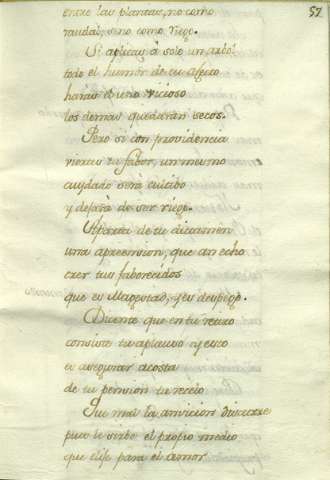 57
entre las plantas, no como
raudal, sino como riego.
Si aplicas à solo un arbol
todo el humor de tu afecto
haras el uno vicioso
los demas quedaran secos.
Pero si con providencia
viertes tu fabor, un mesmo
cuydado será cultibo
y dejará de ser riego.
Aparta de tu dictamen
una aprension, que an echo
crer tus faborecidos
que es Magestad, y es despego.
Dicente que en tu retiro
consiste tu aplauso y esto
es asegurar acosta
de tu pension tu recelo
Que mal la anvicion discurre
pues le sirbe el propio medio
que elije para el amor